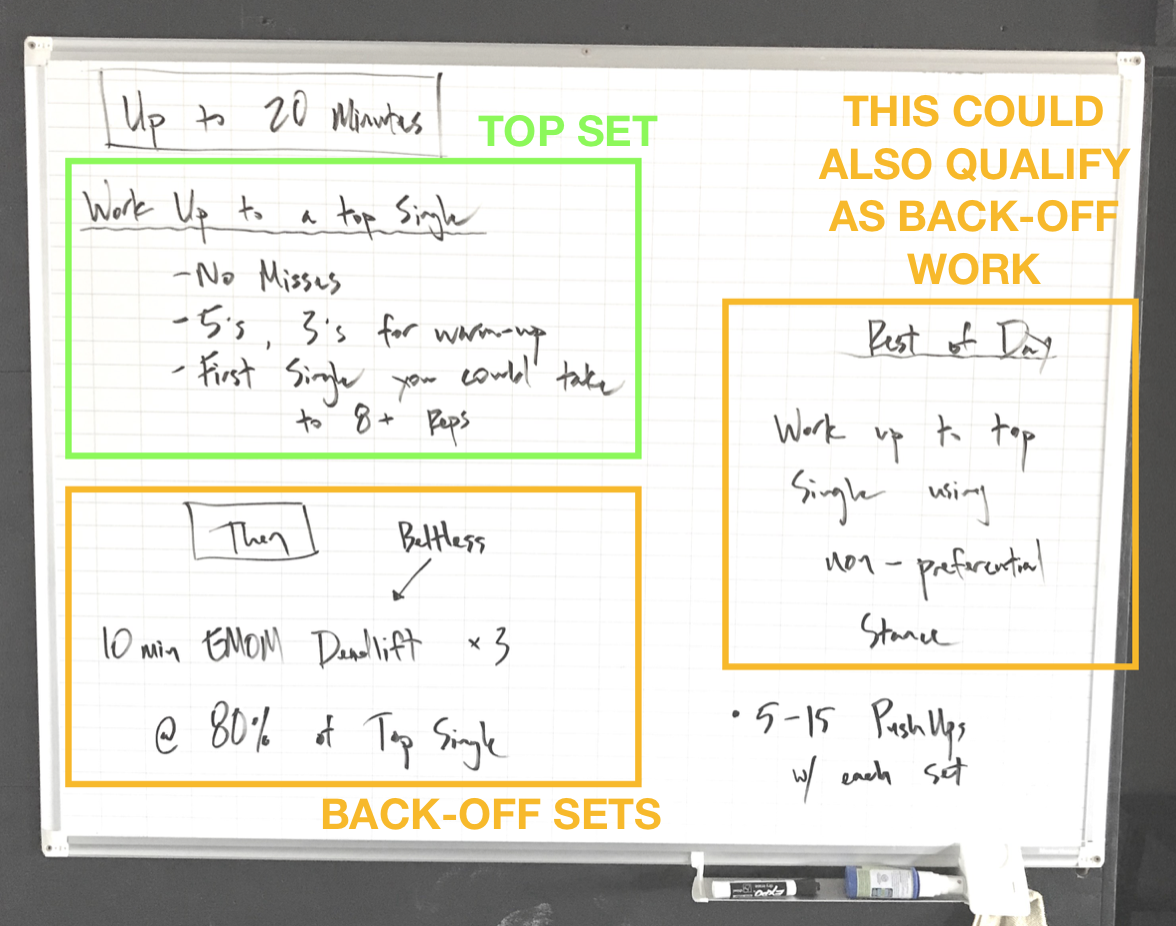 Up to 20 Minutes
TOP SET
Work Up to a top Single
- No Misses
- 5's, 3's for warm-up
- First Single you could take
to 8+ Reps
Then
Beltless
10 min EMOM Deadlift × 3
@ 80% of Top Single
BACK-OFF SETS
THIS COULD
ALSO QUALIFY
AS BACK-OFF
WORK
Rest of Day
Work up to top
Single using
non-preferential
Stance
• 5-15 PushUps
w/ each set
EXPO